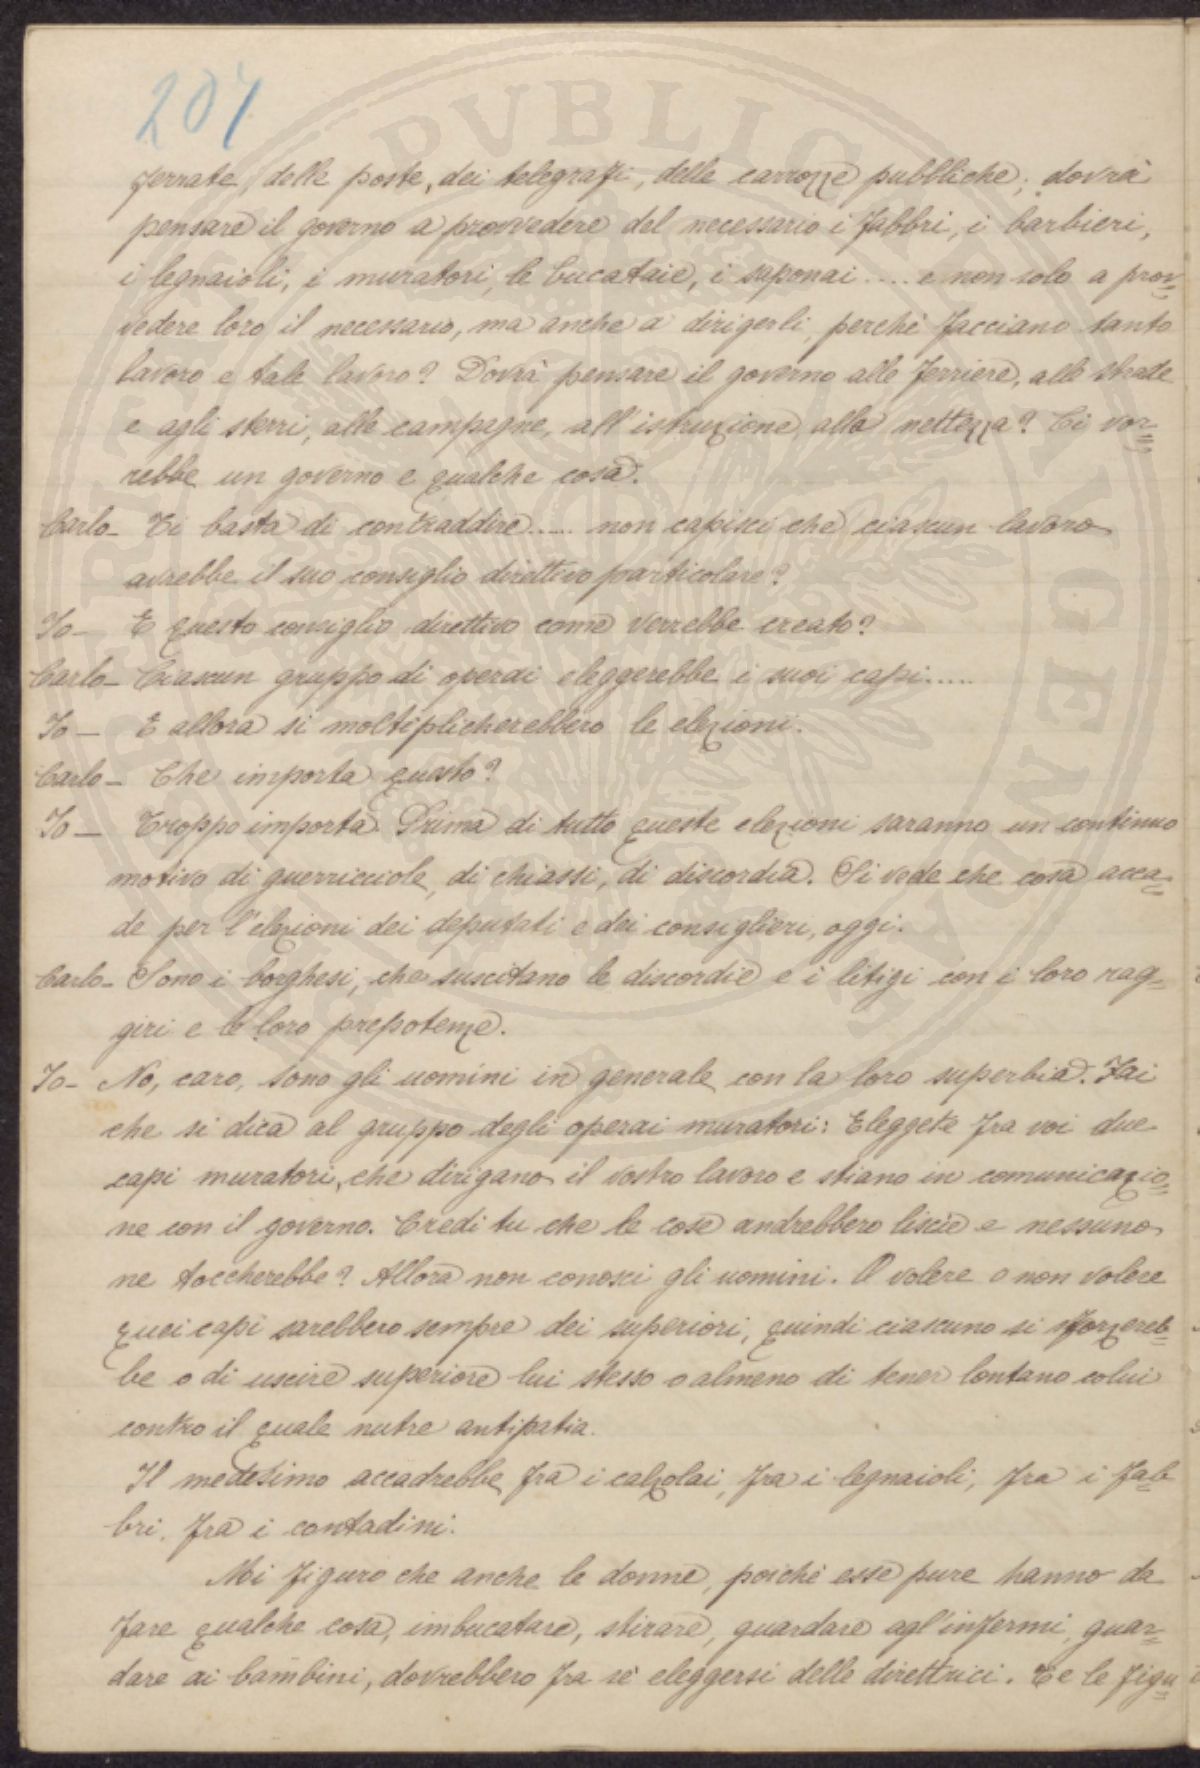 204
ferrate, delle poste, dei telegrafi, delle carrozze pubbliche; dovrà
pensare il governo a provvedere del necessario i fabbri, i barbieri,
i legnaioli, i muratori, le bucataie, i saponai .... e non solo a prov=
vedere loro il necessario, ma anche a dirigerli, perchè facciano tanto
lavoro e tale lavoro? Dovrà pensare il governo alle ferriere, alle strade
e agli sterri, alle campagne, all'istruzione, alla nettezza? Ci vor=
rebbe un governo e qualche cosa.
Carlo - Ti basta di contraddire..... non capisci che ciascun lavoro
avrebbe il suo consiglio direttivo particolare?
Io - E questo consiglio direttivo come verrebbe creato?
Carlo - Ciascun gruppo di operai eleggerebbe i suoi capi.....
Io - E allora si moltiplicherebbero le elezioni.
Carlo - Che importa questo?
Io - Troppo importa. Prima di tutto queste elezioni saranno un continuo
motivo di guerricciole, di chiassi, di discordia. Si vede che cosa acca=
de per l'elezioni dei deputati e dei consiglieri, oggi.
Carlo - Sono i borghesi, che suscitano le discordie e i litigi con i loro rag=
giri e le loro prepotenze.
Io - No, caro, sono gli uomini in generale con la loro superbia. Fai
che si dica al gruppo degli operai muratori: Eleggete fra voi due
capi muratori, che dirigano il vostro lavoro e stiano in comunicazio=
ne con il governo. Credi tu che le cose andrebbero liscie e nessuno
ne toccherebbe? Allora non conosci gli uomini. O volere o non volere
quei capi sarebbero sempre dei superiori, quindi ciascuno si sforzereb=
be o di uscire superiore lui stesso o almeno di tener lontano colui
contro il quale nutre antipatia.
Il medesimo accadrebbe fra i calzolai, fra i legnaioli, fra i fab=
bri, fra i contadini.
Mi figuro che anche le donne, poichè esse pure hanno da
fare qualche cosa, imbucatare, stirare, guardare agl'infermi, guar=
dare ai bambini, dovrebbero fra sè eleggersi delle direttrici. Te le figu=